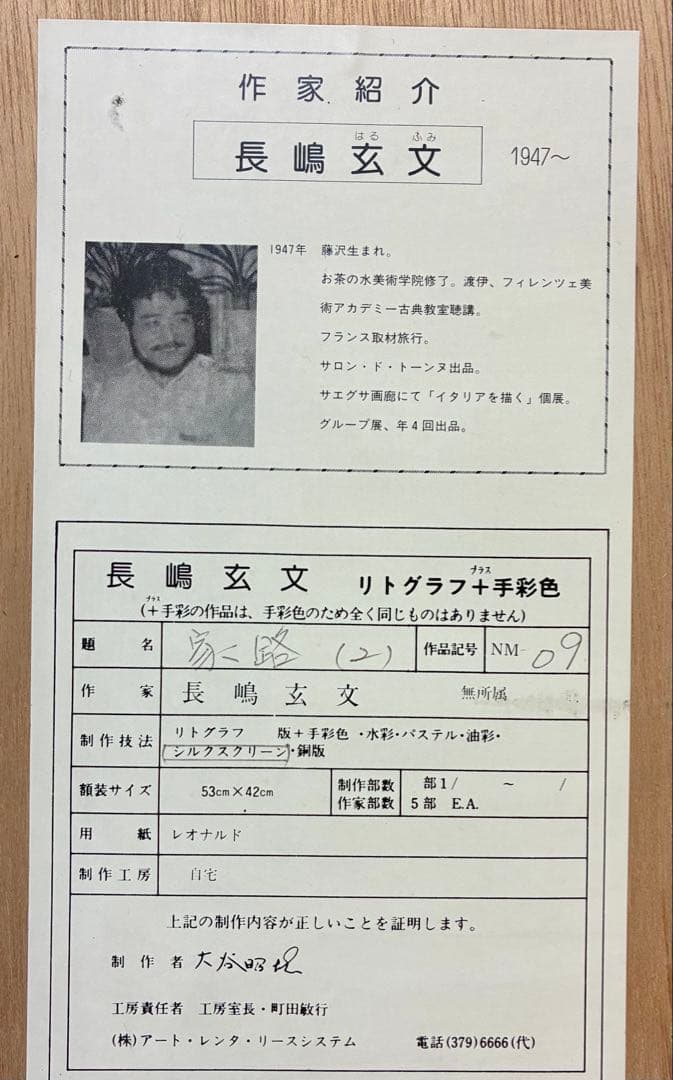 作家紹介
はる ふみ
長嶋玄文 1947～
1947年 藤沢生まれ。
お茶の水美術学院修了。渡伊、フィレンツェ美
術アカデミー古典教室聴講。
フランス取材旅行。
サロン・ド・トーンヌ出品。
サエグサ画廊にて「イタリアを描く」個展。
グループ展、年4回出品。
プラス
長嶋玄文 リトグラフ＋手彩色
プラス
(＋手彩の作品は、手彩色のため全く同じものはありません)
題名 家く路 (2) 作品記号 NM-09
作家 長嶋玄文 無所属
制作技法 リトグラフ 版＋手彩色・水彩・パステル・油彩・
シルクスクリーン・銅版
額装サイズ 53cm×42cm 制作部数 部1/ ～ /
作家部数 5部 E.A.
用紙 レオナルド
制作工房 自宅
上記の制作内容が正しいことを証明します。
制作者
工房責任者 工房室長・町田敏行
(株)アート・レンタ・リースシステム 電話(379)6666(代)